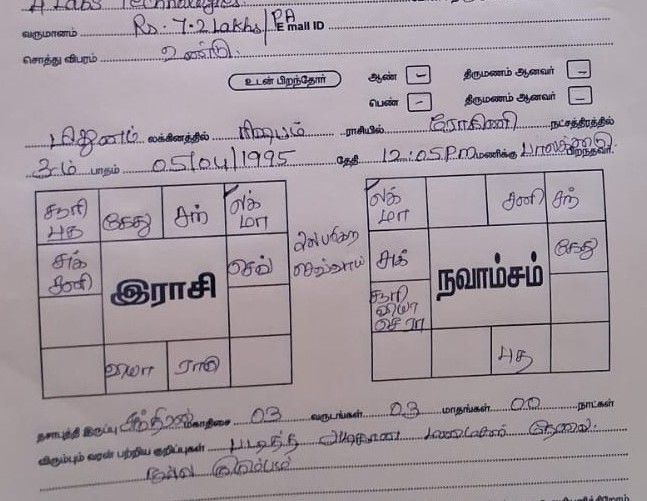 Labs Technologies.
வருமானம் Rs. 7.2 Lakhs/PA E mail ID
சொத்து விபரம் உண்டு.
உடன் பிறந்தோர் ஆண் - திருமணம் ஆனவர் -
பெண் - திருமணம் ஆனவர் -
மிதுனம் லக்கினத்தில் ரிஷபம் ராசியில் ரோகிணி நட்சத்திரத்தில்
3ம் பாதம் 05/04/1995 தேதி 12:05 PM மணிக்கு பிறந்தவர்.
சூரி புத கேது சந் லக் மா
சுக் சனி இராசி செவ்
வியா ராகு
செவ்வாய்
லக் மா சனி சந்
சுக் நவாம்சம் கேது
சூரி வியா செ ரா
புத
தசாபுத்தி இருப்பு சந்திரன் மகாதிசை 03 வருடங்கள் 03 மாதங்கள் 00 நாட்கள்
விரும்பும் வரன் பற்றிய குறிப்புகள் படித்த அழகான மணமகன் தேவை.
நல்ல குடும்பம்